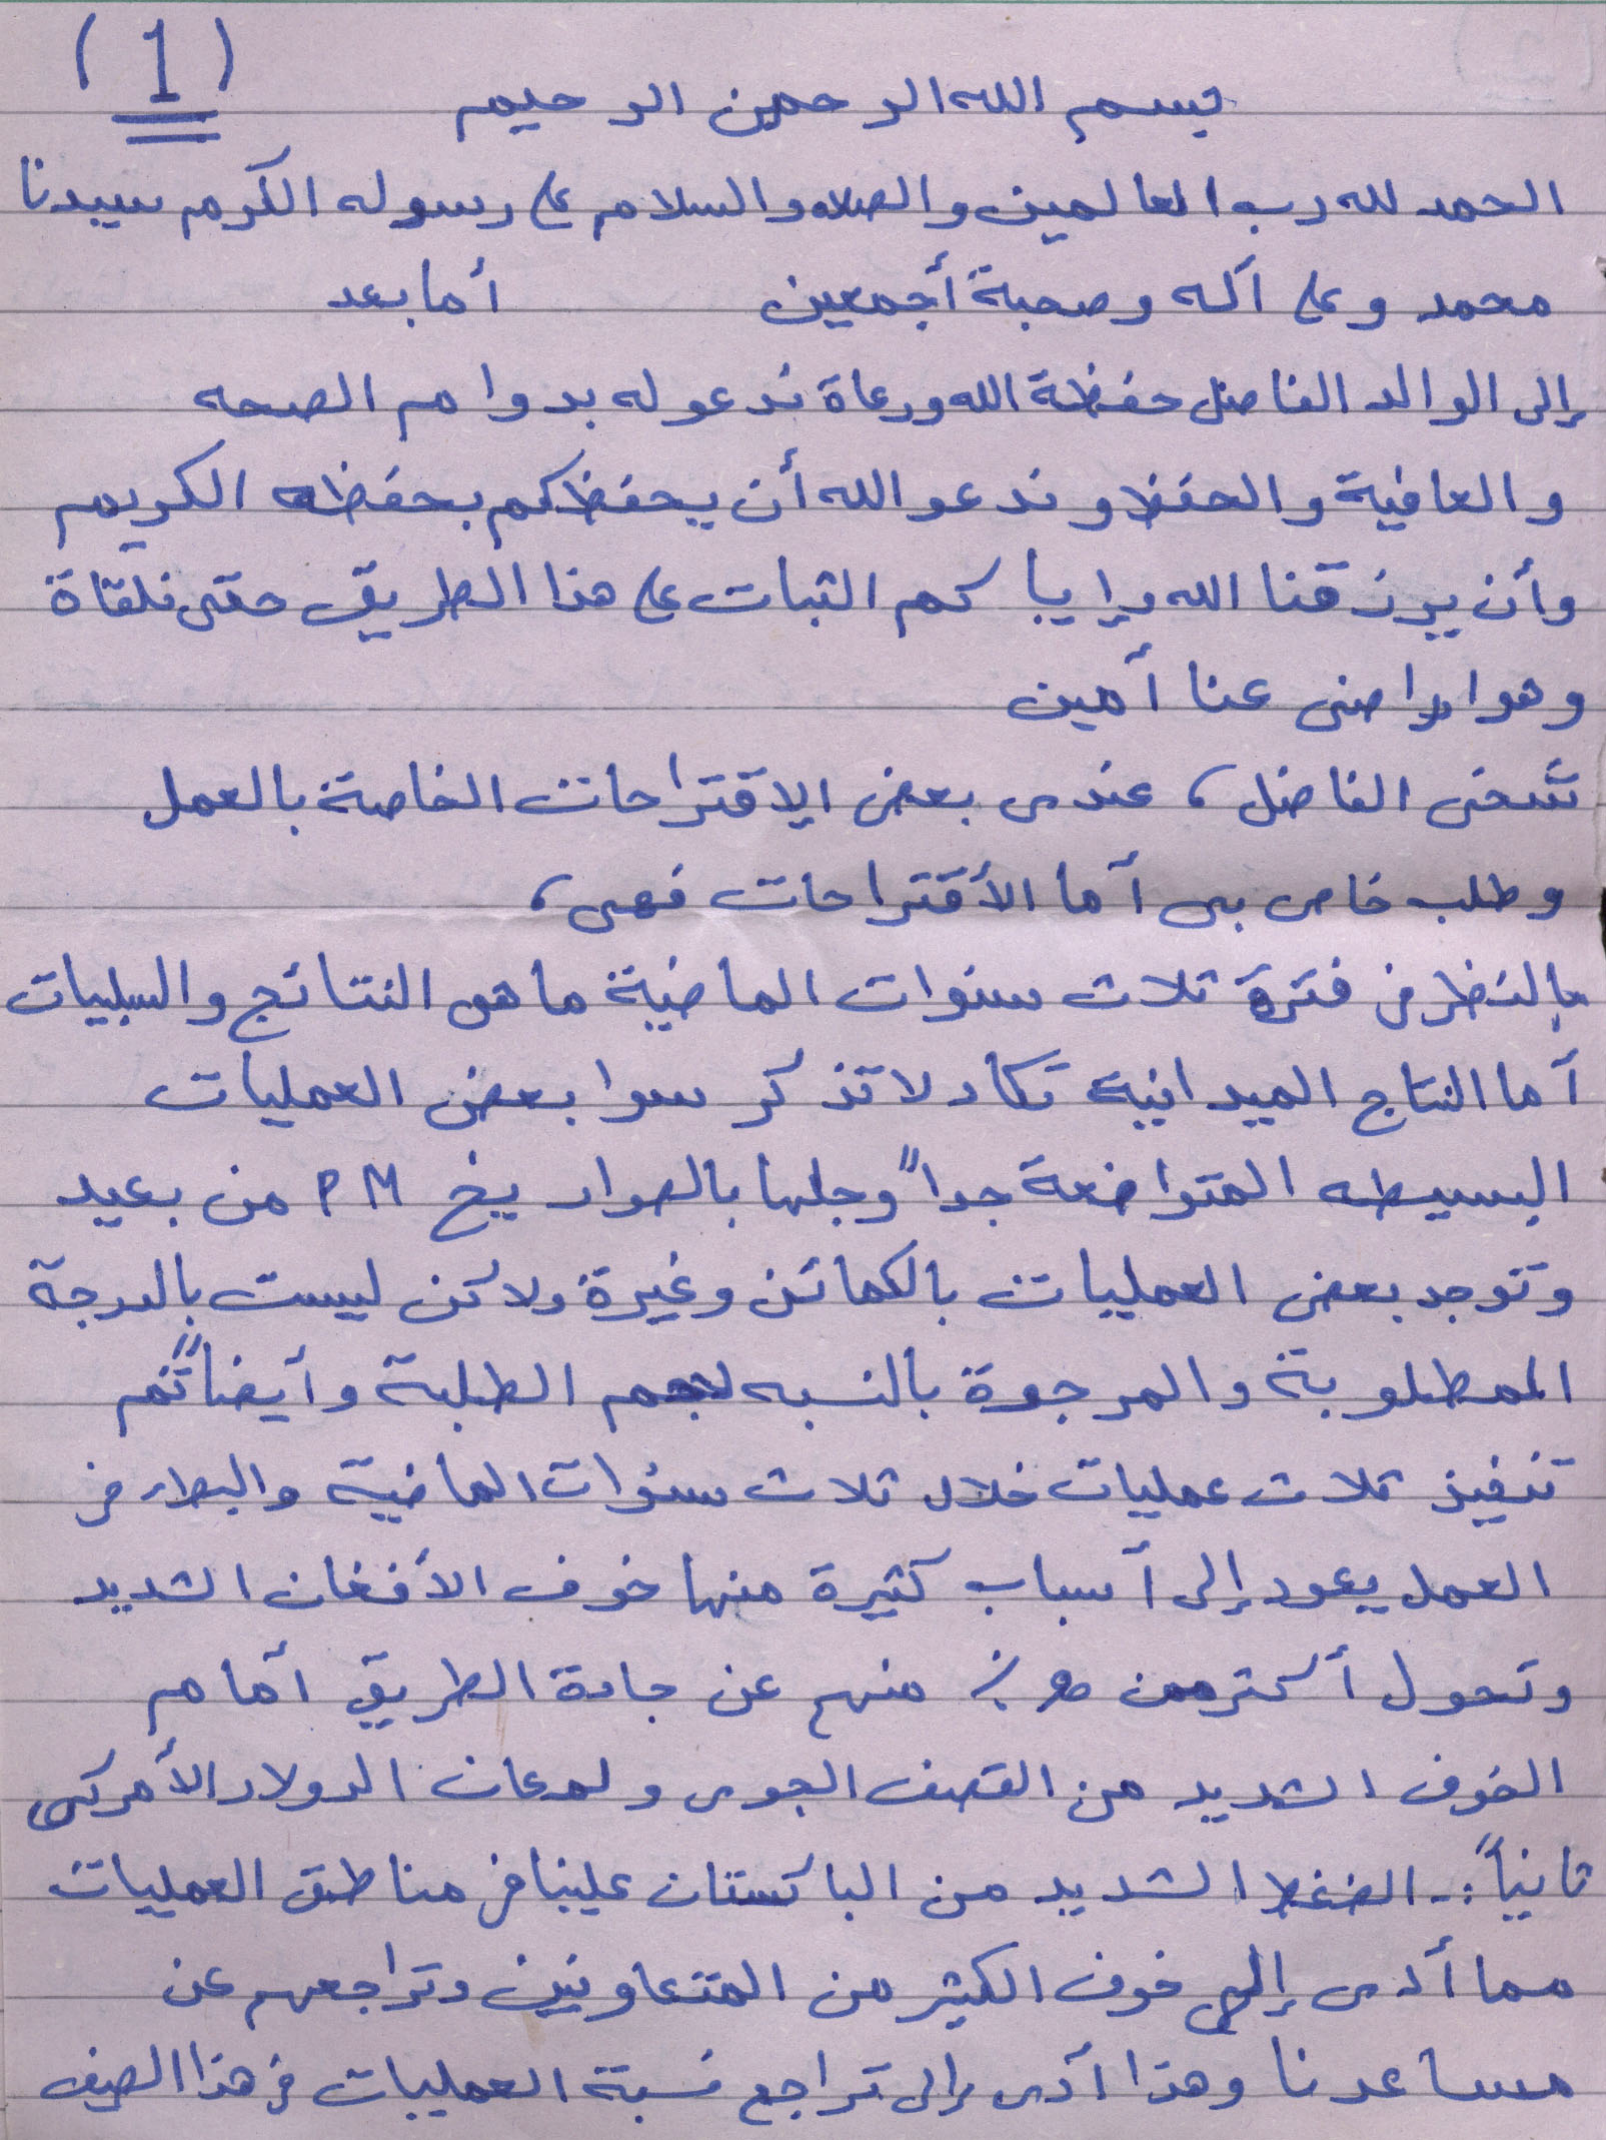 (1)
بسم الله الرحمن الرحيم
الحمد لله رب العالمين والصلاه والسلام على رسوله الكرم سيدنا
محمد وعلى آله وصحبة أجمعين أما بعد
إلى الوالد الفاضل حفظة الله ورعاة ندعوله بدوام الصحه
والعافية والحفظ وندعو الله أن يحفظكم بحفظه الكريم
وأن يرزقنا الله وإياكم الثبات على هذا الطريق حتى نلقاة
وهوا راضى عنا أمين
شيخى الفاضل، عندى بعض الإقتراحات الخاصة بالعمل
وطلب خاص بى أما الأقتراحات فهى،
بالنظر فى فترة ثلاث سنوات الماضية ما هى النتائج والسلبيات
أما النتاج الميدانية تكاد لا تذكر سوا بعض العمليات
البسيطه المتواضعة جداً وجلها بالصواريخ PM من بعيد
وتوجد بعض العمليات بالكمائن وغيرة ولاكن ليست بالدرجة
المطلوبة والمرجوة بالنسبه لهم الطلبة وأيضاً تم
تنفيذ ثلاث عمليات خلال ثلاث سنوات الماضية والبطء فى
العمل يعود إلى أسباب كثيرة منها خوف الأفغان الشديد
وتحول أكثر من % منهم عن جادة الطريق أمام
الخوف الشديد من القصف الجوى ولمعان الدولار الأمركى
ثانياً:- الضغط الشديد من الباكستان علينا فى مناطق العمليات
مما أدى إلى خوف الكثير من المتعاونين وتراجعهم عن
مساعدنا وهذا أدى إلى تراجع نسبة العمليات فى هذا الصيف